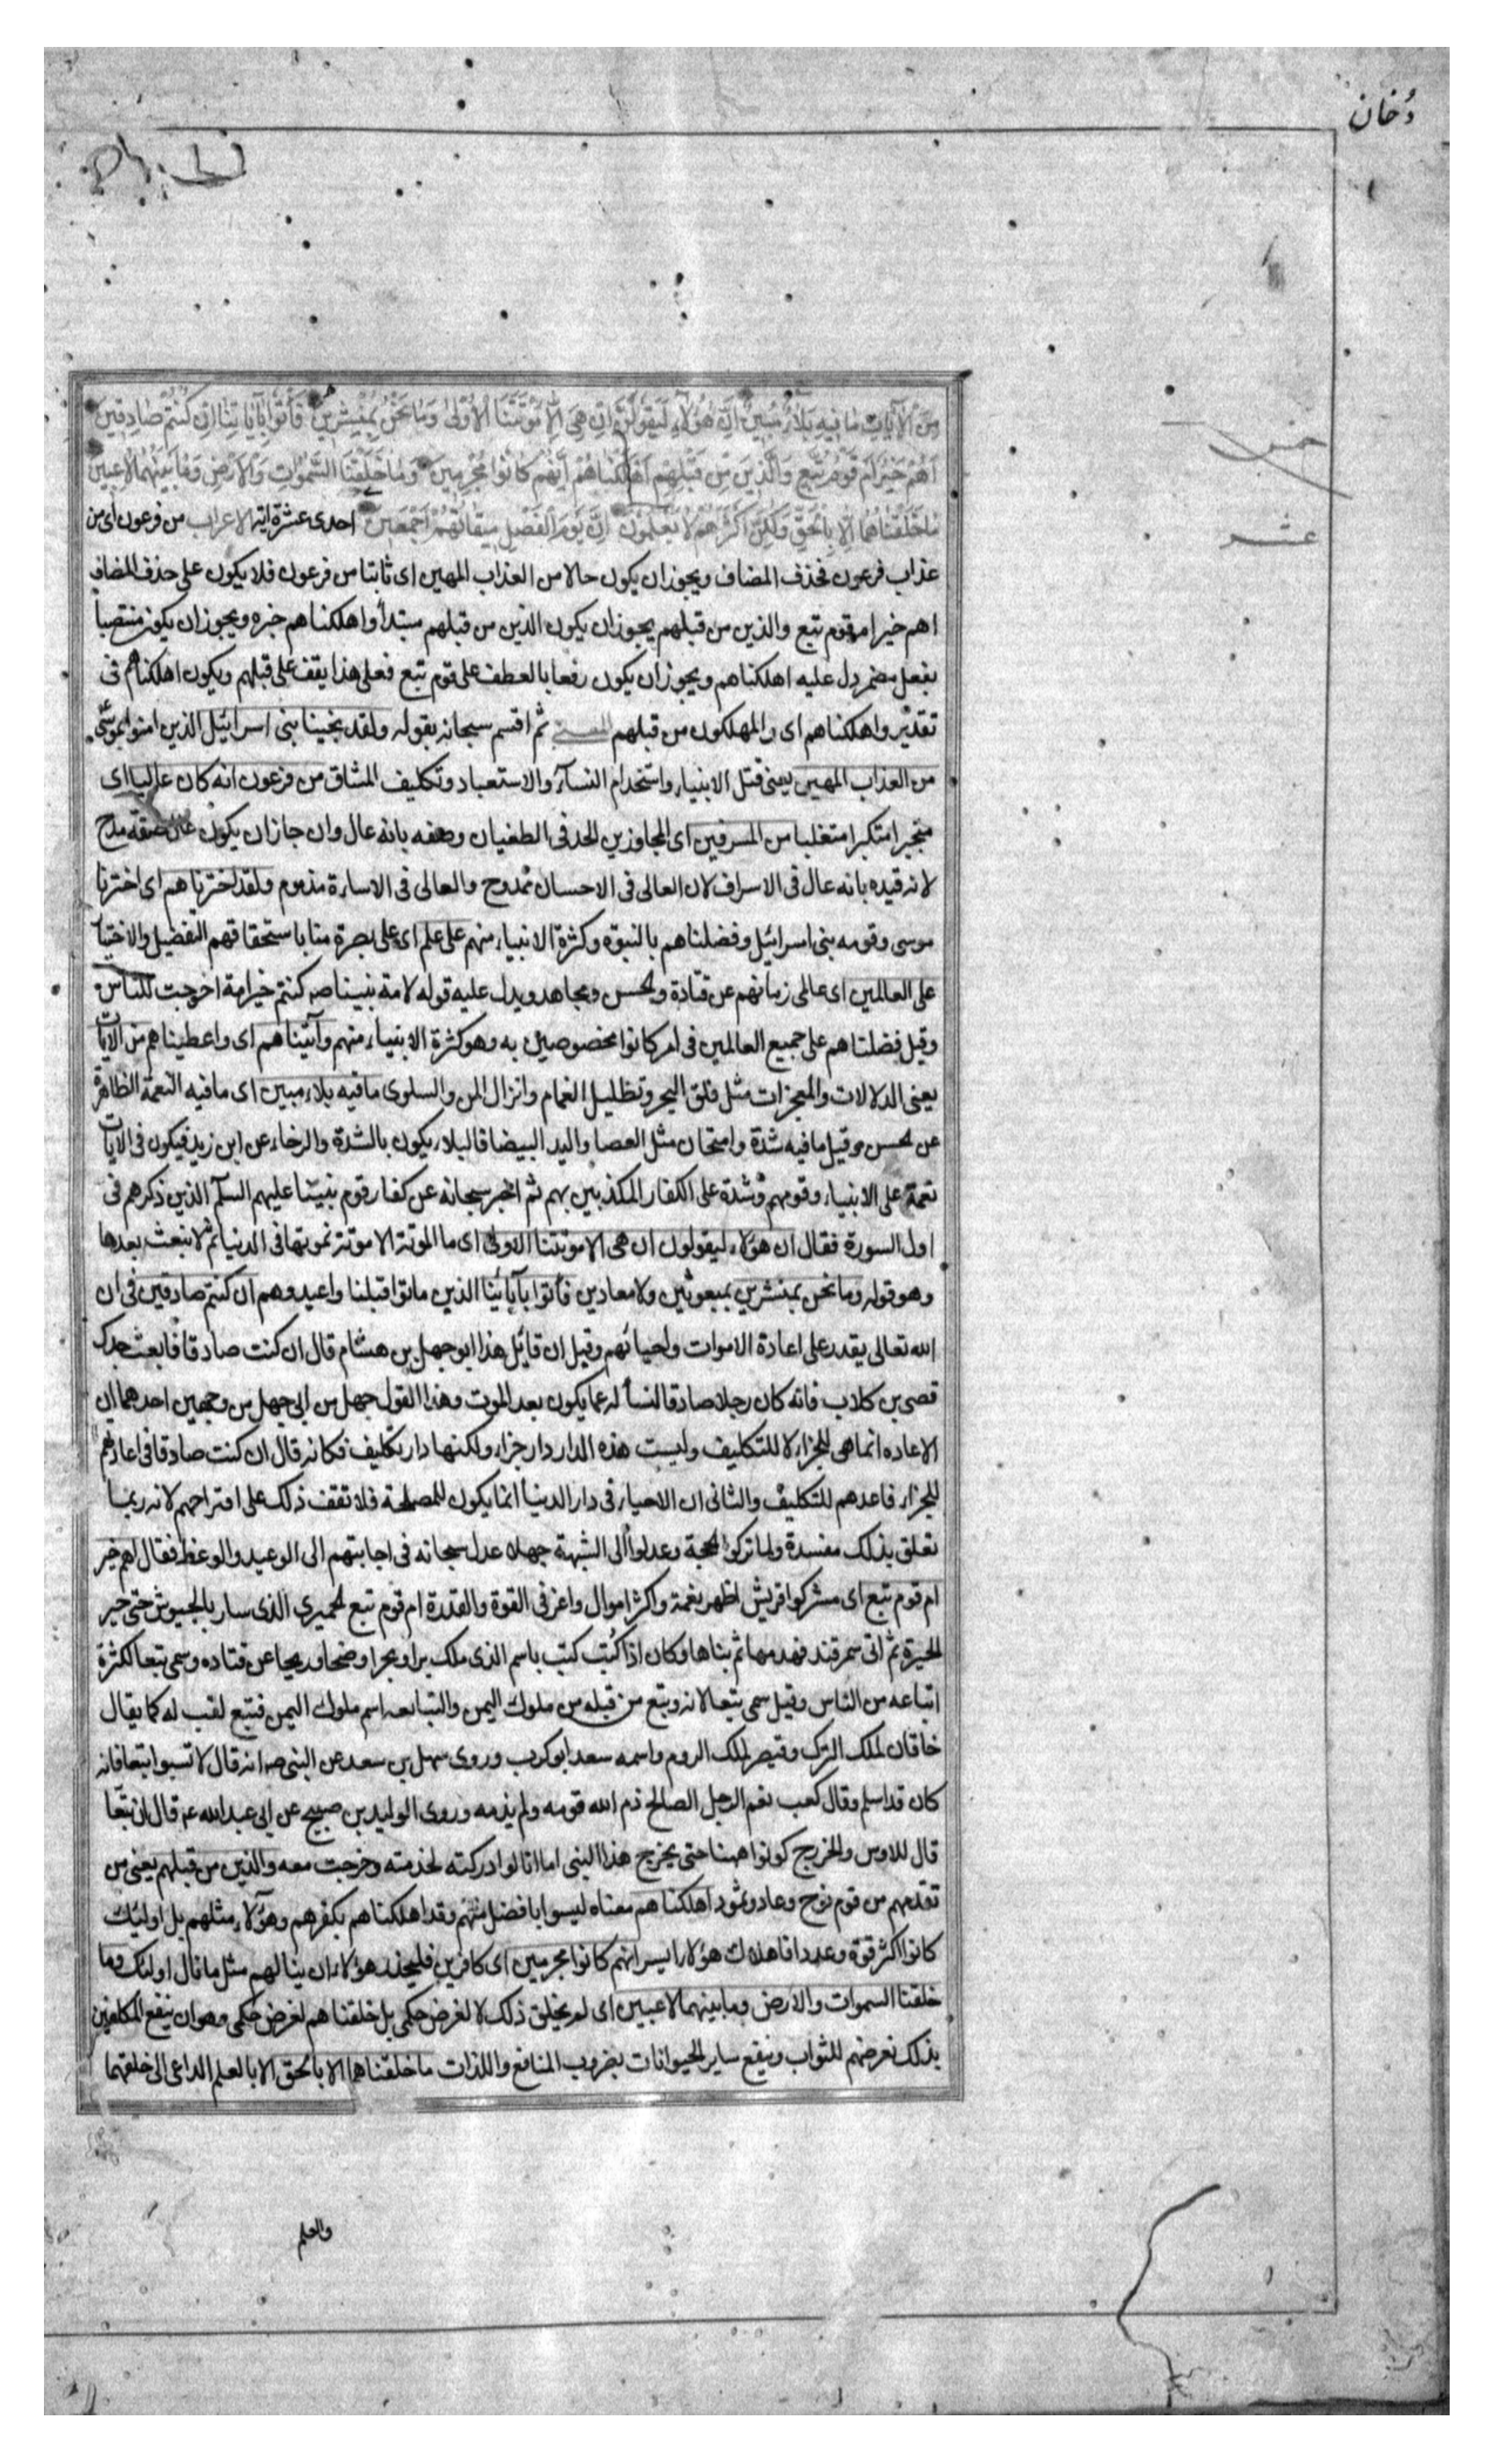 دُخان
مِنَ الْآيَاتِ مَا فِيهِ بَلَاءٌ مُبِينٌ اِنَّ هٰؤُلَاءِ لَيَقُولُونَ اِنْ هِيَ اِلَّا مَوْتَتُنَا الْاُولٰى وَمَا نَحْنُ بِمُنْشَرِينَ فَأْتُوا بِآبَائِنَا اِنْ كُنْتُمْ صَادِقِينَ
اَهُمْ خَيْرٌ اَمْ قَوْمُ تُبَّعٍ وَالَّذِينَ مِنْ قَبْلِهِمْ اَهْلَكْنَاهُمْ اِنَّهُمْ كَانُوا مُجْرِمِينَ وَمَا خَلَقْنَا السَّمٰوَاتِ وَالْاَرْضَ وَمَا بَيْنَهُمَا لَاعِبِينَ
خمس
مَا خَلَقْنَاهُمَا اِلَّا بِالْحَقِّ وَلٰكِنَّ اَكْثَرَهُمْ لَا يَعْلَمُونَ اِنَّ يَوْمَ الْفَصْلِ مِيقَاتُهُمْ اَجْمَعِينَ احدى عشرة آية الاعراب من فرعون اى من
عشر
عذاب فرعون فحذف المضاف ويجوز ان يكون حالا من العذاب المهين اى ثابتا من فرعون فلا يكون على حذف المضاف
اهم خير ام قوم تبع والذين من قبلهم يجوز ان يكون الذين من قبلهم مبتدأ واهلكناهم خبره ويجوز ان يكون منتصبا
بفعل مضمر دل عليه اهلكناهم ويجوز ان يكون رفعا بالعطف على قوم تبع فعلى هذا يقف على قبلهم ويكون اهلكناهم فى
تقدير واهلكناهم اى والمهلكون من قبلهم المعنى ثم اقسم سبحانه بقوله ولقد نجينا بنى اسرائيل الذين امنوا بموسى
من العذاب المهين يعنى قتل الابنياء واستخدام النساء والاستعباد وتكليف المشاق من فرعون انه كان عاليا اى
متجبرا متكبرا متغلبا من المسرفين اى المجاوزين الحد فى الطغيان وصفه بانه عال وان جاز ان يكون عال صفة مدح
لانه قيده بانه عال فى الاسراف لان العالى فى الاحسان ممدوح والعالى فى الاساءة مذموم ولقد اخترناهم اى اخترنا
موسى وقومه بنى اسرائيل وفضلناهم بالنبوة وكثرة الانبياء منهم على علم اى على بصيرة منا باستحقاقهم التفضيل والاختيا
على العالمين اى عالمى زمانهم عن قتادة والحسن ومجاهد ويدل عليه قوله لامة نبينا ص كنتم خير امة اخرجت للناس
وقيل فضلناهم على جميع العالمين فى امر كانوا مخصوصين به وهو كثرة الانبياء منهم وآتيناهم اى واعطيناهم من الآيات
يعنى الدلالات والمعجزات مثل فلق البحر وتظليل الغمام وانزال المن والسلوى ما فيه بلاء مبين اى ما فيه النعمة الظاهرة
عن الحسن وقيل ما فيه شدة وامتحان مثل العصا واليد البيضا فالبلاء يكون بالشدة والرخاء عن ابن زيد فيكون فى الآيات
نعمة على الانبياء وقومهم وشدة على الكفار المكذبين بهم ثم اخبر سبحانه عن كفار قوم نبينا عليهم السلم الذين ذكرهم فى
اول السورة فقال ان هؤلاء ليقولون ان هى الا موتتنا الاولى اى ما الموتة الا موتة نموتها فى الدنيا ثم لا نبعث بعدها
وهو قوله وما نحن بمنشرين بمبعوثين ولا معادين فاتوا بآبائنا الذين ماتوا قبلنا واعيدوهم ان كنتم صادقين فى ان
الله تعالى يقدر على اعادة الاموات واحيائهم وقيل ان قائل هذا ابو جهل بن هشام قال ان كنت صادقا فابعث جدك
قصى بن كلاب فانه كان رجلا صادقا لنسأله عما يكون بعد الموت وهذا القول جهل من ابى جهل من وجهين احدهما ان
الاعاده انما هى للجزاء لا للتكليف وليست هذه الدار دار جزاء ولكنها دار تكليف فكانه قال ان كنت صادقا فى اعادتهم
للجزاء فاعدهم للتكليف والثانى ان الاحياء فى دار الدنيا انما يكون للمصلحة فلا تقف ذلك على اقتراحهم لانه ربما
تعلق بذلك مفسدة ولما تركوا الحجة وعدلوا الى الشبهة جهلا عدل سبحانه فى اجابتهم الى الوعيد والوعظ فقال اهم خير
ام قوم تبع اى مشركوا قريش اظهر نعمة واكثر اموال واعز فى القوة والقدرة ام قوم تبع الحميرى الذى سار بالجيوش حتى حير
الحيرة ثم اتى سمرقند فهدمها ثم بناها وكان اذا كتب كتب باسم الذى ملك برا وبحرا وضحا وريحا عن قتاده وسمى تبعا لكثرة
اتباعه من الناس وقيل سمى تبعا لانه وتبع من قبله من ملوك اليمن والتبابعه اسم ملوك اليمن فتبع لقب له كما يقال
خاقان لملك الترك وقيصر لملك الروم واسمه سعد ابو كرب وروى سهل بن سعد عن النبى ص انه قال لا تسبوا تبعا فانه
كان قد اسلم وقال كعب نعم الرجل الصالح ذم الله قومه ولم يذمه وروى الوليد بن صبيح عن ابى عبد الله ع قال ان تبعا
قال للاوس والخزرج كونوا ههنا حتى يخرج هذا النبى اما انا لو ادركته لخدمته وخرجت معه والذين من قبلهم يعنى من
تقدمهم من قوم نوح وعاد وثمود اهلكناهم معناه ليسوا بافضل منهم وقد اهلكناهم بكفرهم وهؤلاء مثلهم بل اوليئك
كانوا اكثر قوة وعددا فاهلاك هؤلاء ايسر انهم كانوا مجرمين اى كافرين فليحذر هؤلاء ان ينالهم مثل ما نال اولئك وما
خلقنا السموات والارض وما بينهما لاعبين اى لم نخلق ذلك لا لغرض حكمى بل خلقناهم لغرض حكمى وهو ان ينفع المكلفين
بذلك نعرضهم للثواب وينفع ساير الحيوانات بضروب المنافع واللذات ما خلقناهما الا بالحق الا بالعلم الداعى الى خلقهما
والعلم